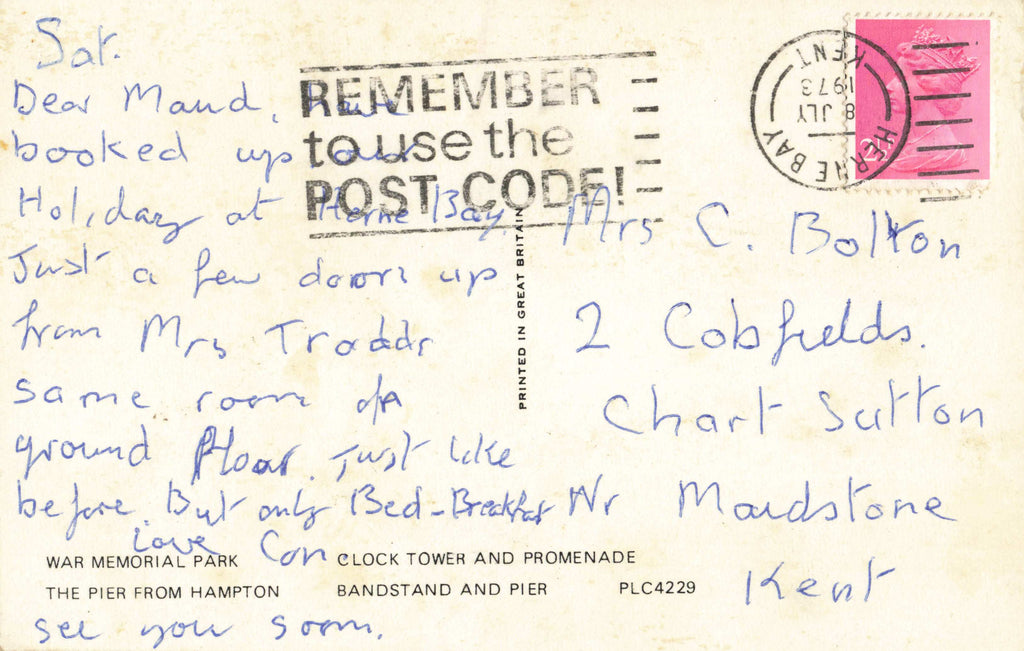 Sat.
Dear Maud, have
booked up our
Holiday at Herne Bay,
Just a few doors up
from Mrs
same room
ground floor. Just like
before. But only Bed-Breakfast
Love Con.
see you soon.
REMEMBER
to use the
POST CODE!
HERNE BAY
KENT
8 JLY
1973
PRINTED IN GREAT BRITAIN
Mrs C. Bolton
2 Cobfields.
Chart Sutton
Nr Maidstone
Kent
WAR MEMORIAL PARK CLOCK TOWER AND PROMENADE
THE PIER FROM HAMPTON BANDSTAND AND PIER PLC4229